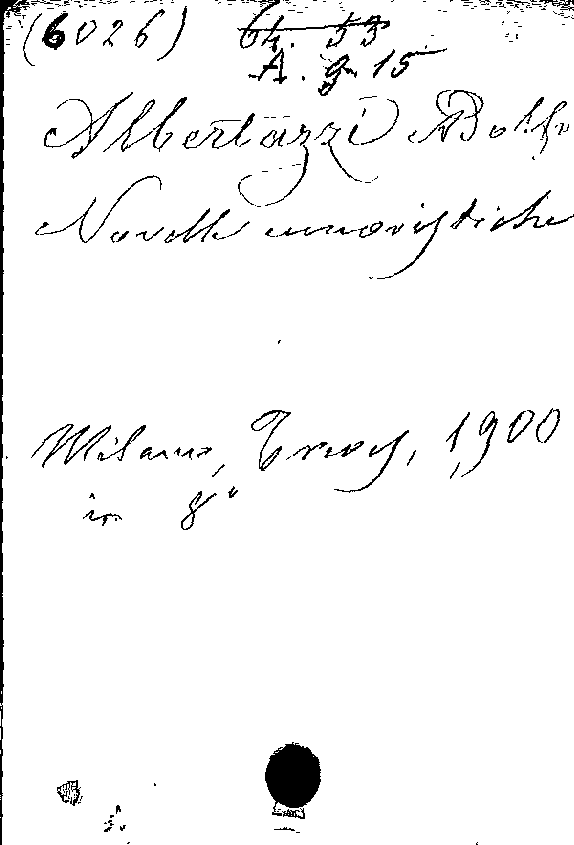 (6026) 64. 53
A. g. 15
Albertazzi Adolfo
Novelle umoristiche
Milano, Treves, 1900
in 8°